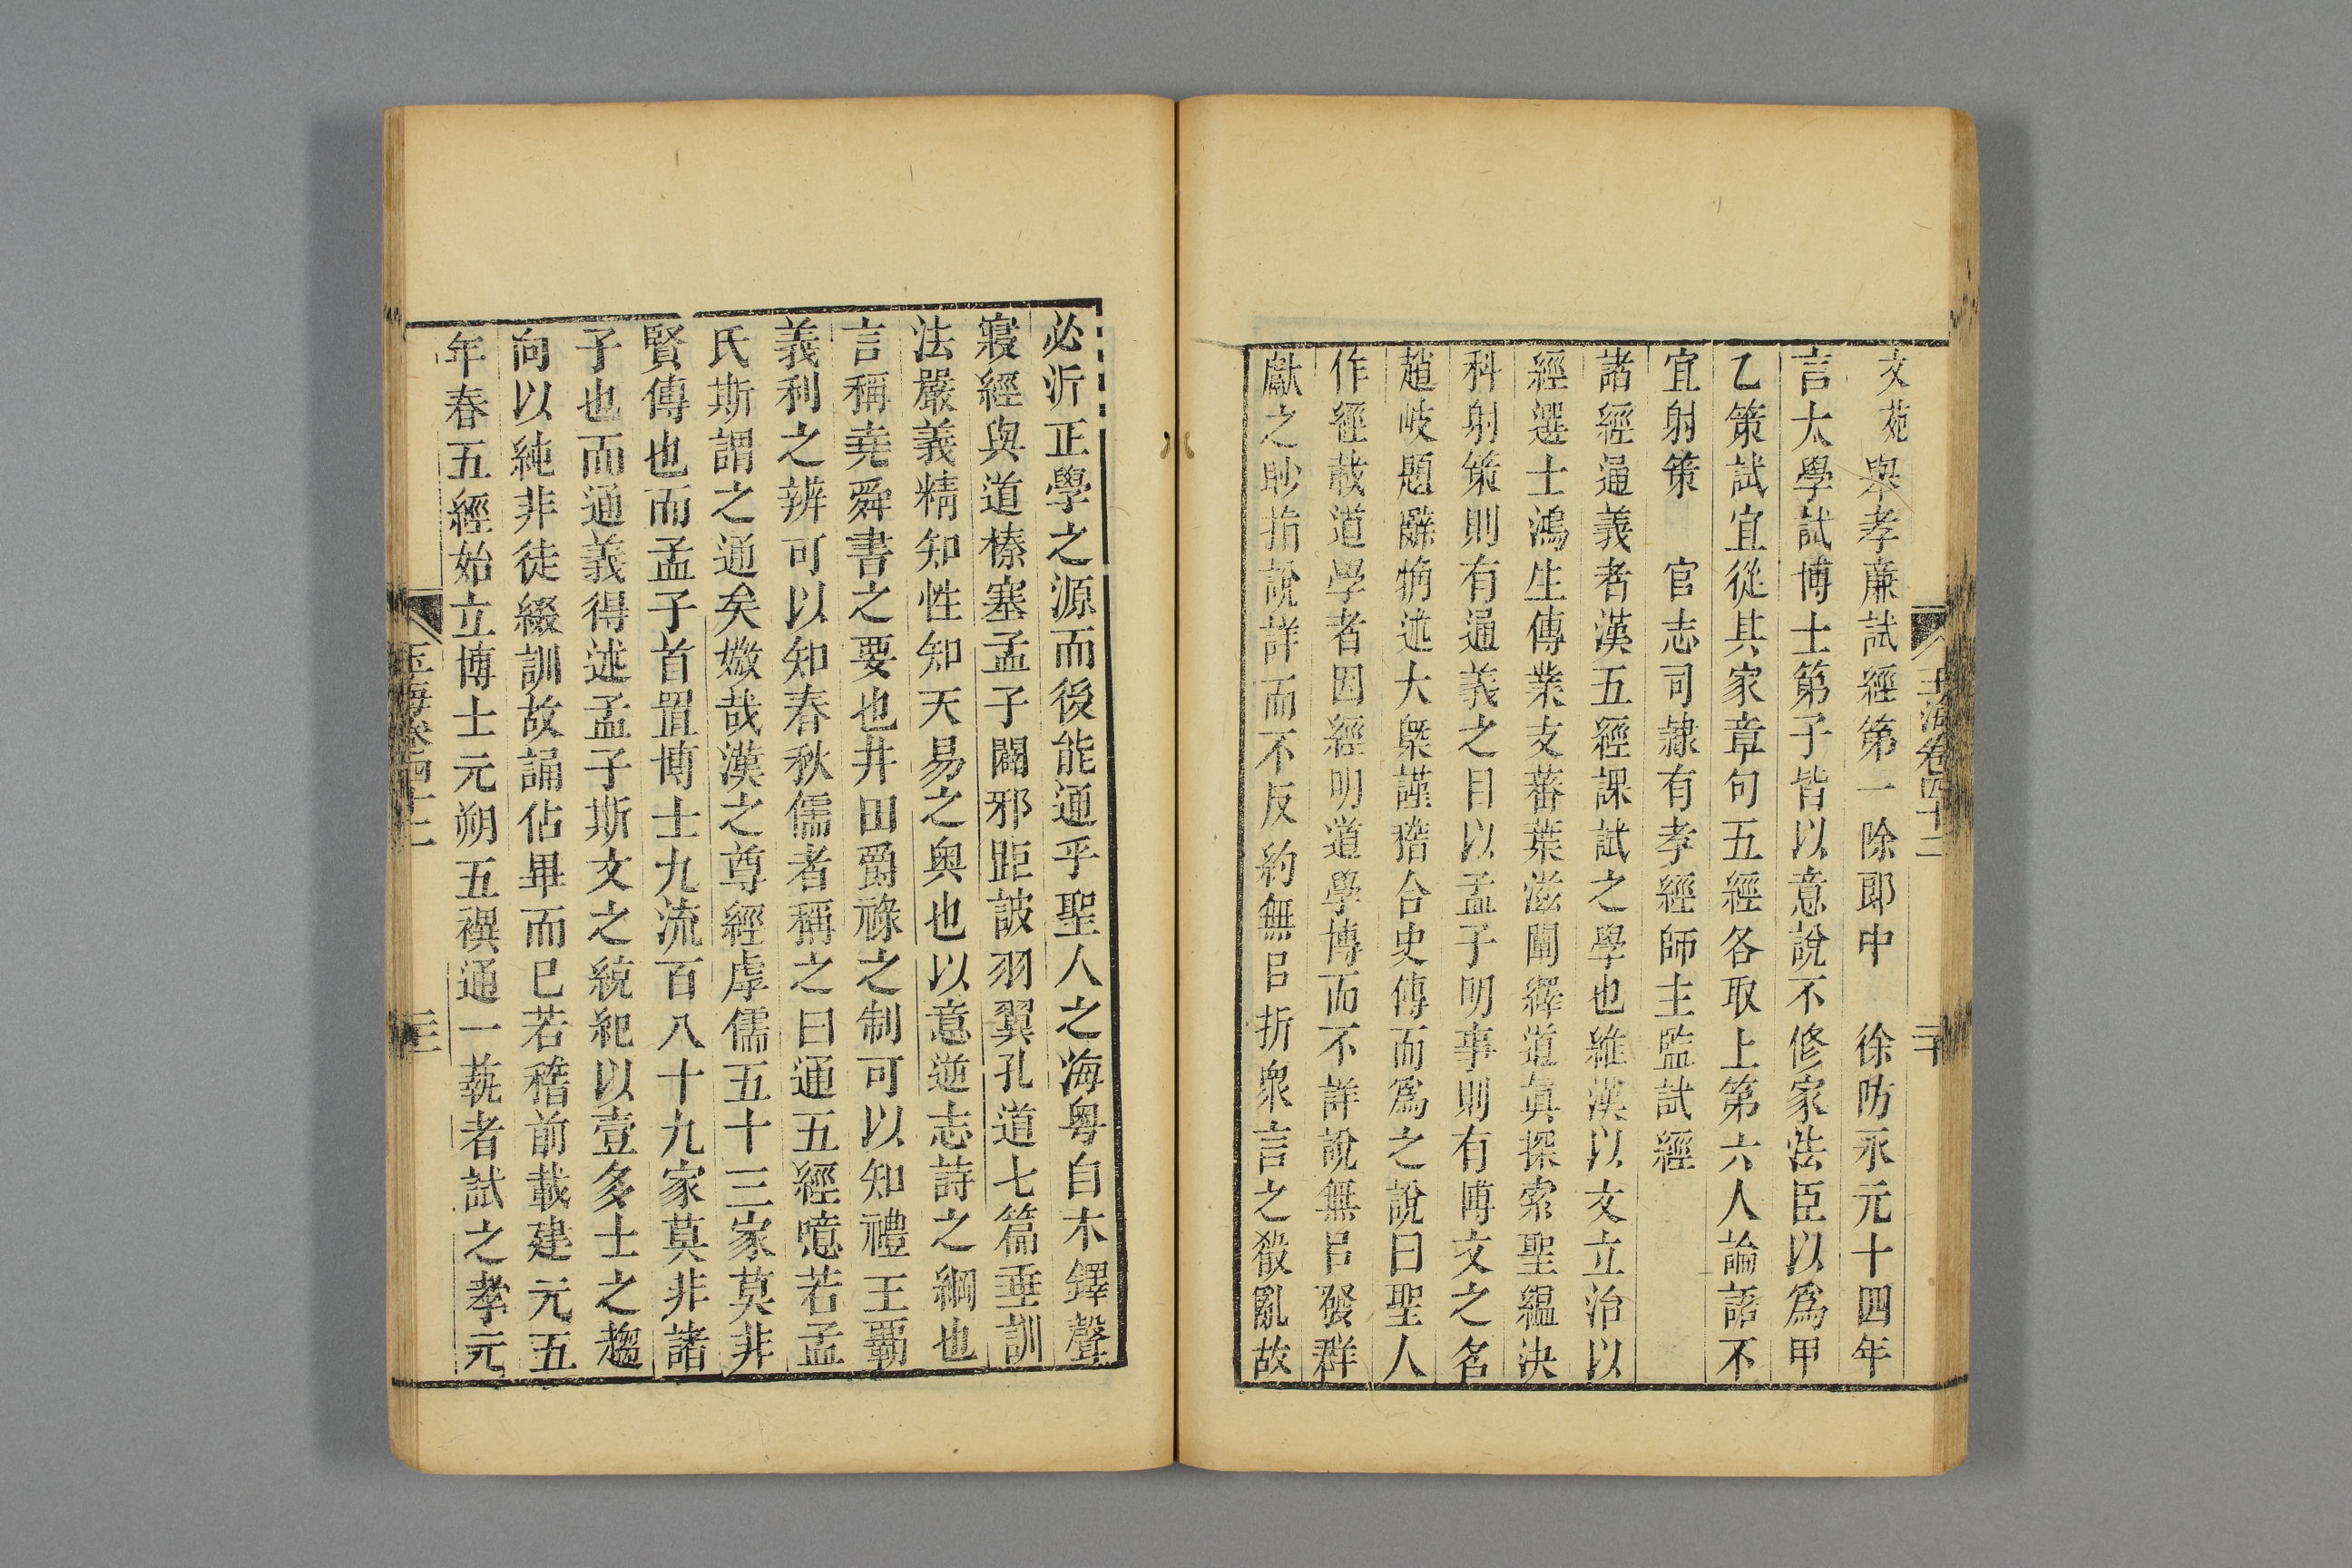 文苑舉孝廉試經第一除郎中　徐防永元十四年
言太學試博士第子皆以意說不修家法臣以爲甲
乙策試宜從其家章句五經各取上第六人論語不
宜射策　官志司隸有孝經師主監試經
諸經通義者漢五經課試之學也維漢以文立治以
經選士鴻生傳業支蕃葉滋闡繹道眞探索聖緼決
科射策則有通義之目以孟子明事則有博文之名
趙岐題辭觕述大槩謹稽合史傳而爲之說曰聖人
作經載道學者因經明道學博而不詳說無㠯發群
獻之眇指說詳而不反約無㠯折衆言之殽亂故
玉海卷四十二
二十
必沂正學之源而後能通乎聖人之海粵自木鐸聲
寢經與道榛塞孟子闢邪距詖羽翼孔道七篇垂訓
法嚴義精知性知天易之奥也以意逆志詩之綱也
言稱堯舜書之要也井田爵祿之制可以知禮王霸
義利之辨可以知春秋儒者稱之曰通五經噫若孟
氏斯謂之通矣媺哉漢之尊經虖儒五十三家莫非
賢傳也而孟子首置博士九流百八十九家莫非諸
子也而通義得述孟子斯文之統紀以壹多士之趨
向以純非徒綴訓故誦佔畢而已若稽前載建元五
年春五經始立博士元朔五禩通一蓺者試之孝元
玉海卷四十二